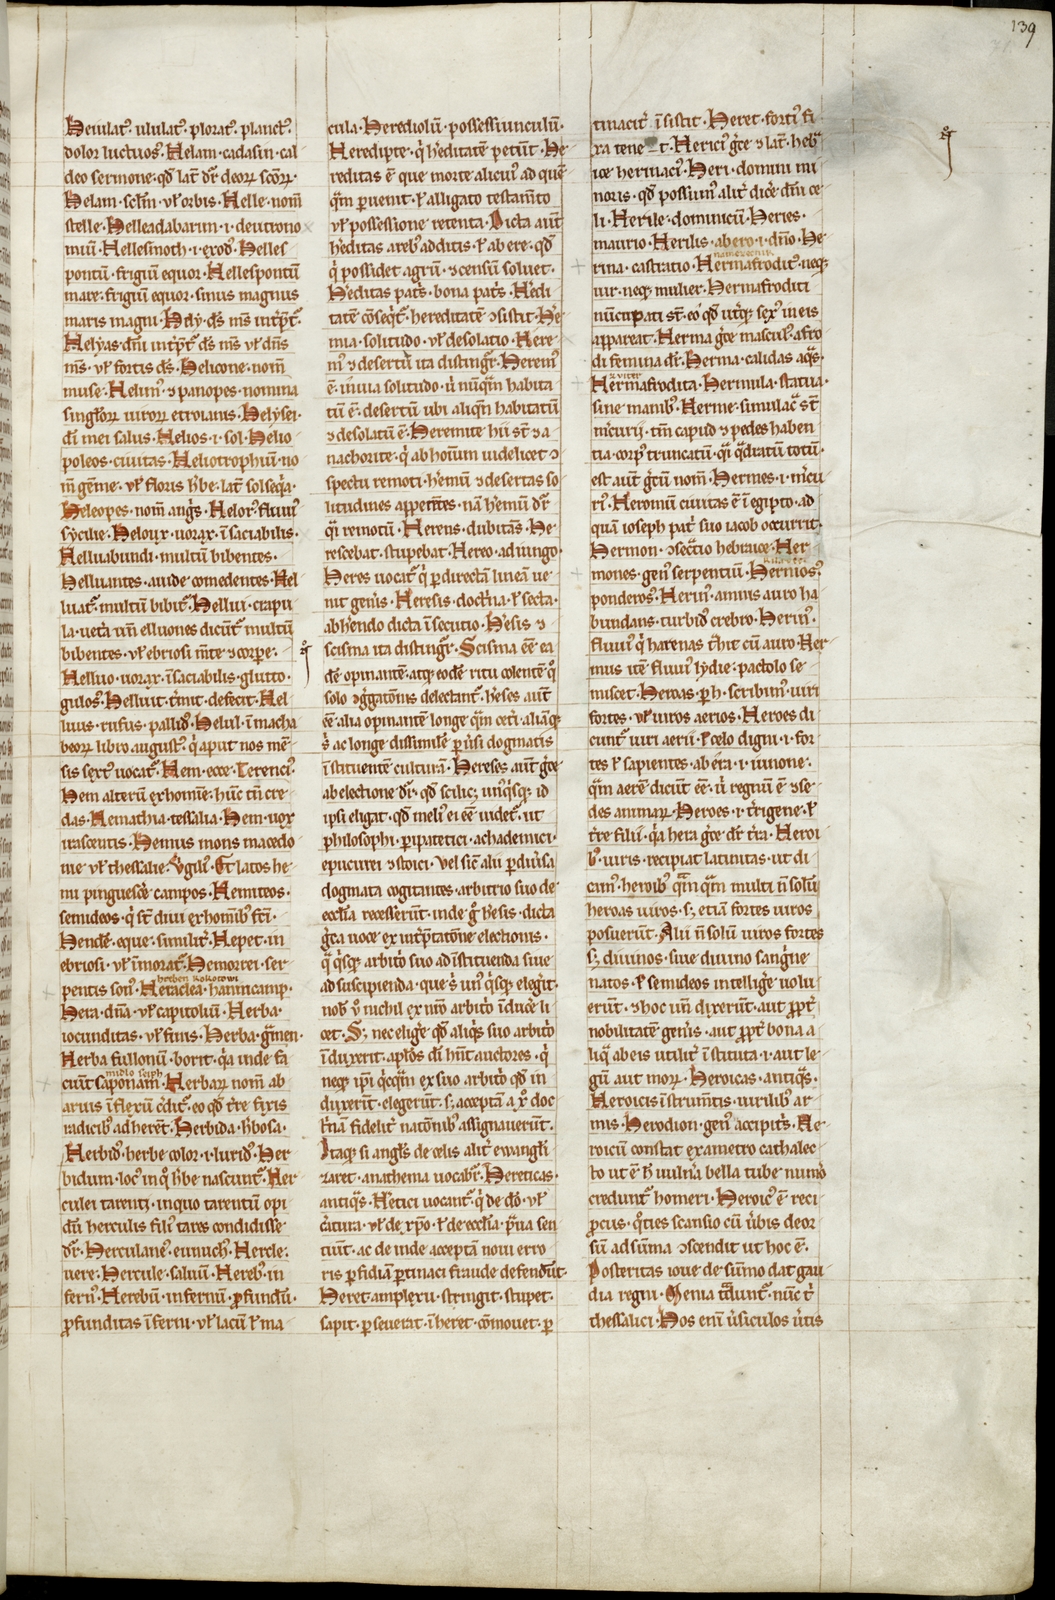 139
Heiulat᷒. ululat᷒. plorat᷒. planct᷒.
dolor luctuos᷒. Helam. cadasin. cal
deo sermone. qd̄ lat̄. dr̄ deoꝝ scōꝝ.
Helam. sclm̄. vł orbis. Helle. nom̄
stelle. Helleadabarim. i. deutrono
miū. Hellesmoth. i. exod᷒. Helles
pontū. frigiū equor. Hellespontū
mare. frigiū equor. sinus magnus
maris magni. Hely. ds̄ ms̄ int͛p̄t᷒.
Helyas. dn̄i int͛p̄t᷒ ds̄ ms̄ vł dn̄s
ms̄. vł fortis ds̄. Helicone. nom̄
muse. Helim᷒. ⁊ panopes. nomina
singłoꝝ uiroꝝ etroianis. Helysei.
dī mei salus. Helios. i. sol. Helio
poleos. ciuitas. Heliotrophiū. no
m̄ gēme. vł floris h͛be. lat̄. solseq̄a.
Heleopes. nom̄ anḡs. Helor᷒. fluui᷒
sycilie. Heloux. uorax. īsaciabilis.
Helluabundi. multū bibentes.
Helluantes. auide comedentes. Hel
luat᷒. multū bibit᷒. Hellui. crapu
la. uet͛a. un̄ elluones dicūt᷒. multū
bibentes. vł ebriosi m̄te ⁊ corꝑe.
Helluo. uorax. īsaciabilis. glutto.
gulos᷒. Helluit. t͛mit. defecit. Hel
luus. rufus. pallid᷒. Helul. ī macha
beoꝝ libro august᷒. q̇ aput nos mē
sis sext᷒ uocat᷒. Hem. ecce. Terenci᷒.
Hem alterū ex homīe. hūc tn̄ cre
das. Hemathia. tessalia. Hem. uox
irascentis. Hemus mons macedo
nie vł thessalie. Vgili᷒. Et latos he
mi pinguesc͛e campos. Hemiteos.
semideos. q̇ st̄ diui ex homīb᷒ fc̄i.
Hendē. eque. similit͛. Hepet. in
ebriosi. vł īmorat᷒. Hemorrei. ser
pentis son᷒. Heraclea. hanincamp.
Hera. dn̄a. vł capitoliū. Herba.
iocunditas. vł finis. Herba. gͣmen.
Herba fullonū. borit. q̇a inde fa
ciūt saponam. Herbaꝝ nom̄ ab
aruis īflexū c͛dit᷒. eo qd̄ t͛re fixis
radicib᷒ adherēt. Herbida. h͛bosa.
Herbid᷒. herbe color. i. lurid᷒. Her
bidum. loc᷒ in q͛ h͛be nascunt᷒. Her
culei tarenti. in quo tarentū opi
dū herculis fili᷒ tares condidisse
dr̄. Herculane᷒. eunuch᷒. Hercle.
uere. Hercule. saluū. Hereb᷒. in
fern᷒. Herebū. infernū. ꝓfundū.
ꝓfunditas īferni. vł lacū ł ma
cula. Herediolū. possessiunculū.
Heredipte. q̇ h͛editatē petūt. He
reditas ē. que morte alicui᷒ ad quē
q̄m ꝑuenit. ł alligato testam̄to
vł possessione retenta. Dicta aūt
h͛editas a reb᷒ aditis. ł ab ere. qd̄
q̇ possidet agrū. ⁊ censū soluet.
H͛editas pat͛s. bona pat͛s. H͛edi
tatē cōseq͛t᷒. hereditatē ⁊sistit. He
mia. solitudo. vł desolatio. Here
m᷒ ⁊ desertū ita distingr̄. Herem᷒
ē. inuia solitudo. q̇ nūq̄m habita
tū ē. desertū ubi aliq̄n habitatū
⁊ desolatū ē. Heremite hii st̄ ⁊ a
nachorite. q̇ ab hoīum uidelicet ⁊
spectu remoti. h͛emū ⁊ desertas so
litudines appetētes. nā h͛emū dr̄
q̄i remotū. Herens. dubitās. He
rescebat. stupebat. Hereo. adiungo.
Heres uocat᷒ q̇ ꝑ directā lineā ue
nit gen͛is. Heresis. doct͛na. ł secta.
ab h͛endo dicta īsecutio. H͛esis ⁊
scisma ita distingr̄. Scisma ēē ea
dē opinantē. atꝙ eodē ritu colentē q᷒
solo ⁊g͛gatōnis delectant᷒. h͛eses aūt
ēē alia opinantē longe q̄m cet͛i. aliāꝙ
s᷒ ac longe dissimilē ꝑ uisi dogmatis
īstituentē culturā. Hereses. aūt g͛ce
ab electione dr̄. qd̄ scilic᷒ un᷒q̇sꝙ id
ipsi eligat. qd̄ meli᷒ ei ēē uidet᷒. ut
philosophi. ꝑipatetici. achademici.
epicurei ⁊ stoici. Vel sic̄ alii ꝑ diu͛sa
dogmata cogitantes. arbitrio suo de
eccl̄ia recesserūt. inde g᷒ h͛esis. dicta
g͛ca uoce ex int͛p̄tatōne electionis.
q̄ q̇sꝙ arbit͛o suo ad īstituenda siue
ad suscipienda. que s᷒ un᷒ q̇sꝙ eleg͛it.
nob᷒ v᷒ nichil ex nr̄o arbit͛o īduce li
cet. Sꝫ nec elig͛e qd̄ aliq̇s suo arbit͛o
īduxerit. apłos dī hn̄t auctores. q̇
neꝙ ip̄i q̇cq̄m ex suo arbit͛o qd̄ in
duxerūt. elegerūt. sꝫ acceptā a xp̄o doc
t͛nā fidelit͛ natōnib᷒ assignauerūt.
Itaꝙ si angl̄s de celis alit͛ ewangli
zaret. anathema uocabr̄. Hereticas.
antiq̇s. H͛etici uocant᷒. q̇ de dō. vł
c͛atura. vł de xp̄o. ł de eccl̄ia. pͣua sen
tiūt. ac de inde acceptā noui erro
ris ꝑfidiā ꝑtinaci fraude defendūt.
Heret. amplexu. stringit. stupet.
sapit. ꝑseuerat. īheret. cōmouet. ꝑ
tinacit͛ īsistit. Heret. forti᷒ fi
xa tene t. Herici᷒ g͛ce ⁊ lat̄. heb͛a
ice herinaci᷒. Heri. domini mi
noris. qd̄ possum᷒ alit͛ dic͛e dn̄i ce
li. Herile. dominicū. Heries.
maurio. Herilis. ab ero. i. dn̄o. He
rina. castratio. Hermafrodit᷒. neꝙ
uir. neꝙ mulier. Hermafroditi
nūcupati st̄. eo qd̄ ut͛qꝫ sex᷒ in eis
appareat. Herma g͛ce mascul᷒. afro
di femina dī. Herma. calidas aq̄s.
Hermafrodita. Hermula. statua.
sine manib᷒. Herme. simulac͛a st̄
m͛curii. tm̄ capud ⁊ pedes haben
tia. corp᷒ truncatū. q̄i q̄dratū totū.
est aūt g͛cū nom̄. Hermes. i. m͛cu
ri᷒. Heroinū ciuitas ē ī egipto. ad
quā ioseph pat͛ suo iacob occurrit.
Hermon. ⁊sec͛tio hebraice. Her
mones. gen᷒ serpentiū. Hernios᷒.
ponderos᷒. Herm᷒. amnis auro ha
bundans. turbid᷒ crebro. Herm᷒.
fluui᷒ q̇ harenas t͛hit cū auro. Her
mus itē fluui᷒ lydie. pactolo se
miscet. Heroas. ꝑ h. scribim᷒. uiri
fortes. vł uiros aerios. Heroes di
cunt᷒ uiri aerii. ł celo digni. i. for
tes ł sapientes. ab era. i. iunone.
q̄m aerē dicūt ēē. ū regnū ē ⁊ se
des animaꝝ. Heroes. i. t͛rigene. ł
t͛re filii. q̇a hera g͛ce dī t͛ra. Heroi
b᷒. uiris. recipiat latinitas. ut di
cim᷒. heroib᷒. q̄m q̄m multi n̄ solū
heroas uiros. sꝫ etiā fortes uiros
posuerūt. Alii n̄ solū uiros fortes
sꝫ diuinos. siue diuino sang͛ne
natos. ł semideos intellig͛e uolu
erūt. ⁊ hoc un̄ dixerūt. aut ꝓpt͛
nobilitatē gen͛is. aut ꝓpt͛ bona a
liq̄ ab eis utilit͛ īstituta. i. aut le
gū aut moꝝ. Heroicas. antiq̇s.
Heroicis īstrum̄tis. uirilib᷒ ar
mis. Herodion. gen᷒ accipit͛s. He
roicū constat exametro cathalec
to ut ē h̄ uuln͛a bella tube num᷒o
credunt᷒ homeri. Heroic᷒ ē reci
procus. q͛ties scansio cū u͛bis deor
sū ad sūma ⁊scendit ut hoc ē.
Posteritas ioue de sūmo dat gau
dia regni. Menia t͛dunt᷒. nūc t͛
thessalici. Hos enī u͛siculos u͛tis